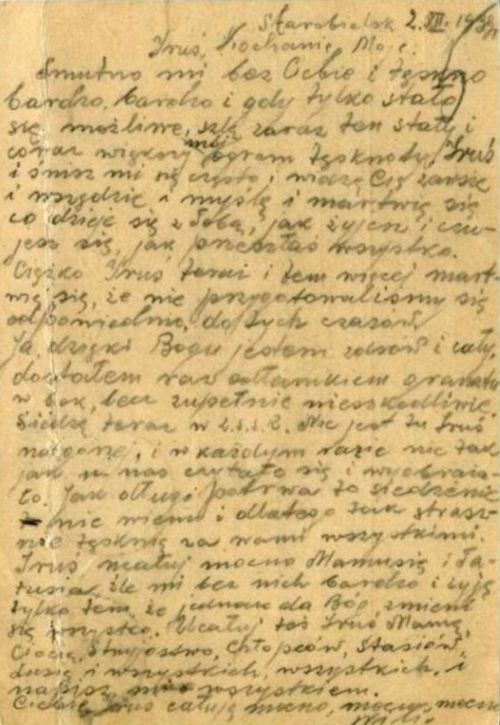 Starobielsk 2.XII.1939r
Iruś, Kochanie Moje.
Smutno mi bez Ciebie i tęskno
bardzo, bardzo i gdy tylko stało
się możliwe, szlę zaraz ten stały i
coraz większy mój ogrom tęsknoty. Iruś
i śnisz mi się często i widzę Cię zawsze
i wszędzie i myślę i martwię się
co dzieje się z Tobą, jak żyjesz i czu-
jesz się, jak przeszłaś wszystko.
Ciężko Iruś teraz i tem więcej mart-
wię się, że nie przygotowaliśmy się
odpowiednio do tych czasów.
Ja, dzięki Bogu jestem zdrów i cały,
dostałem raz odłamkiem granatu
w bok, lecz zupełnie nieszkodliwie.
Siedzę teraz w Z.S.S.R. Nie jest tu Iruś
najgorzej, i w każdym razie nie tak
jak u nas czytało się i wyobraża-
ło. Jak długo potrwa to siedzenie
nie wiem i dlatego tak strasz-
nie tęsknię za wami wszystkimi.
Iruś, ucałuj mocno Mamusię i Ta-
tusia, źle mi bez nich bardzo i żyję
tylko tem, że jednak da Bóg, zmieni
się wszystko. Ucałuj też Iruś Mamę,
Ciocię, Stryjostwo, Chłopców, Stasiów,
i wszystkich, wszystkich, i
napisz o wszystkiem.
Ciebie Iruś całuję mocno, mocno, mocno